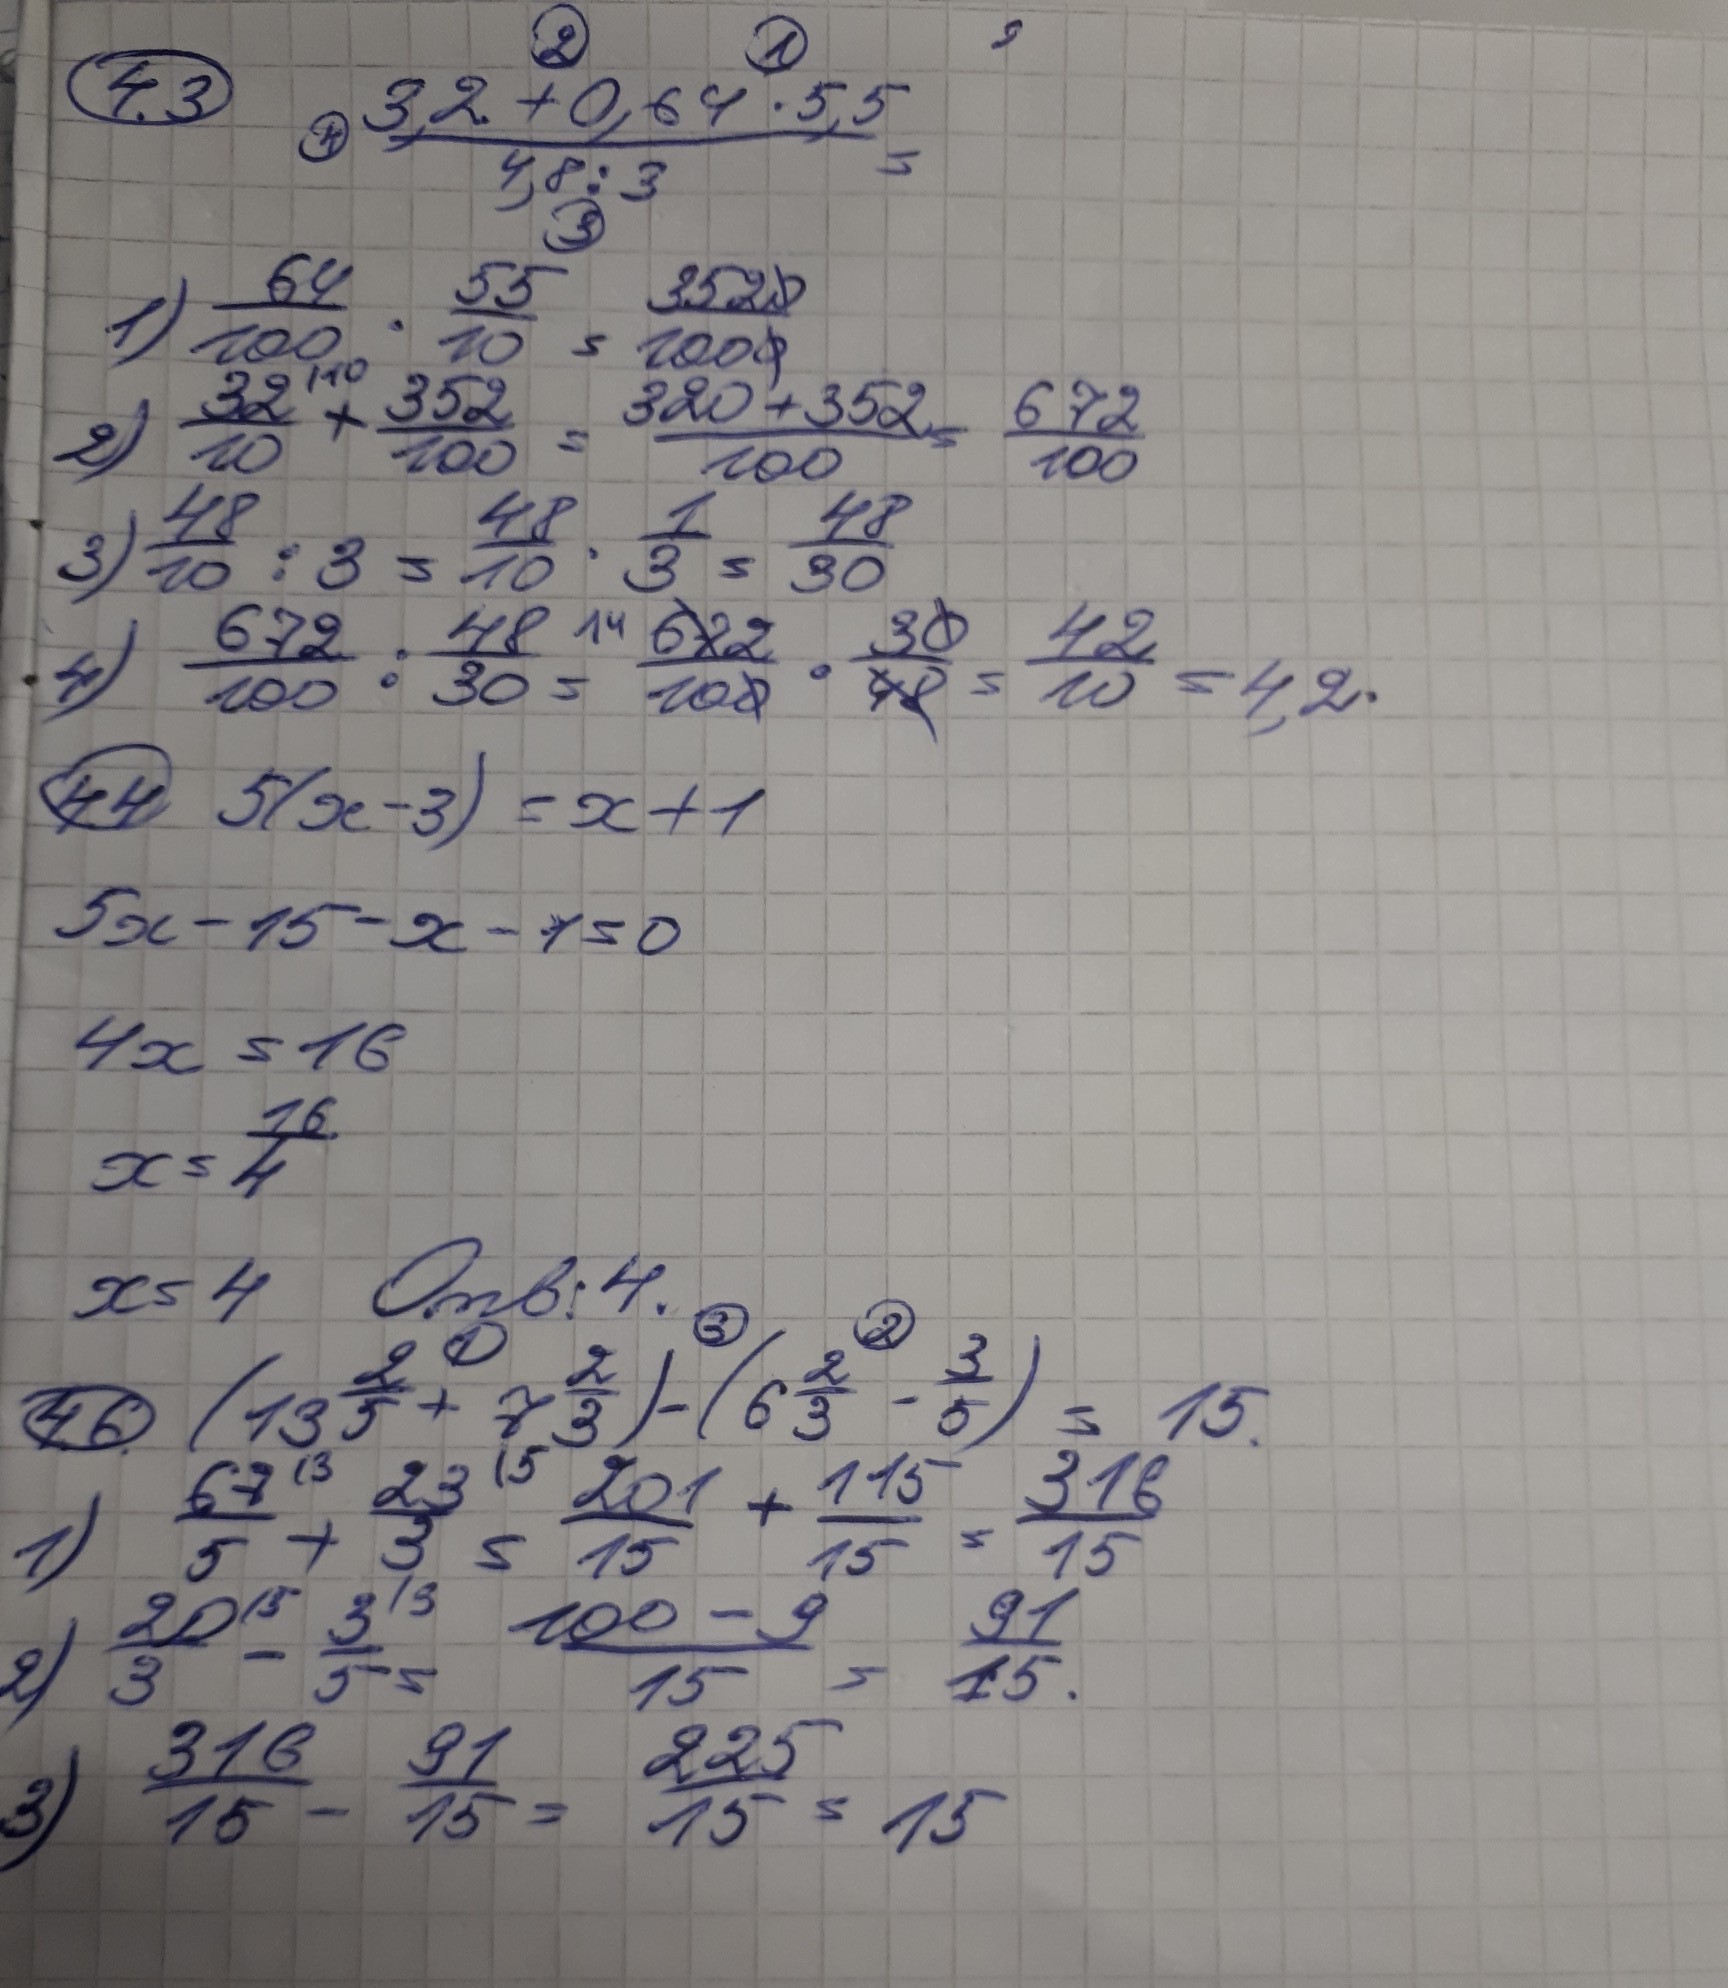 ② ①
4.3 3,2 + 0,64 · 5,5
④ ――――――― =
4,8 : 3
③
1) 64/100 · 55/10 = 3520/1000
2) 32/10 |10 + 352/100 = (320 + 352)/100 = 672/100
3) 48/10 : 3 = 48/10 · 1/3 = 48/30
4) 672/100 : 48/30 = 14 672/100 · 30/48 = 42/10 = 4,2.
4.4 5(x - 3) = x + 1
5x - 15 - x - 1 = 0
4x = 16
x = 16/4
x = 4 Отв: 4.
① ③ ②
4.6. (13 2/5 + 7 2/3) - (6 2/3 - 3/5) = 15.
1) 67/5 |3 + 23/3 |5 = 201/15 + 115/15 = 316/15
2) 20/3 |5 - 3/5 |3 = (100 - 9)/15 = 91/15.
3) 316/15 - 91/15 = 225/15 = 15